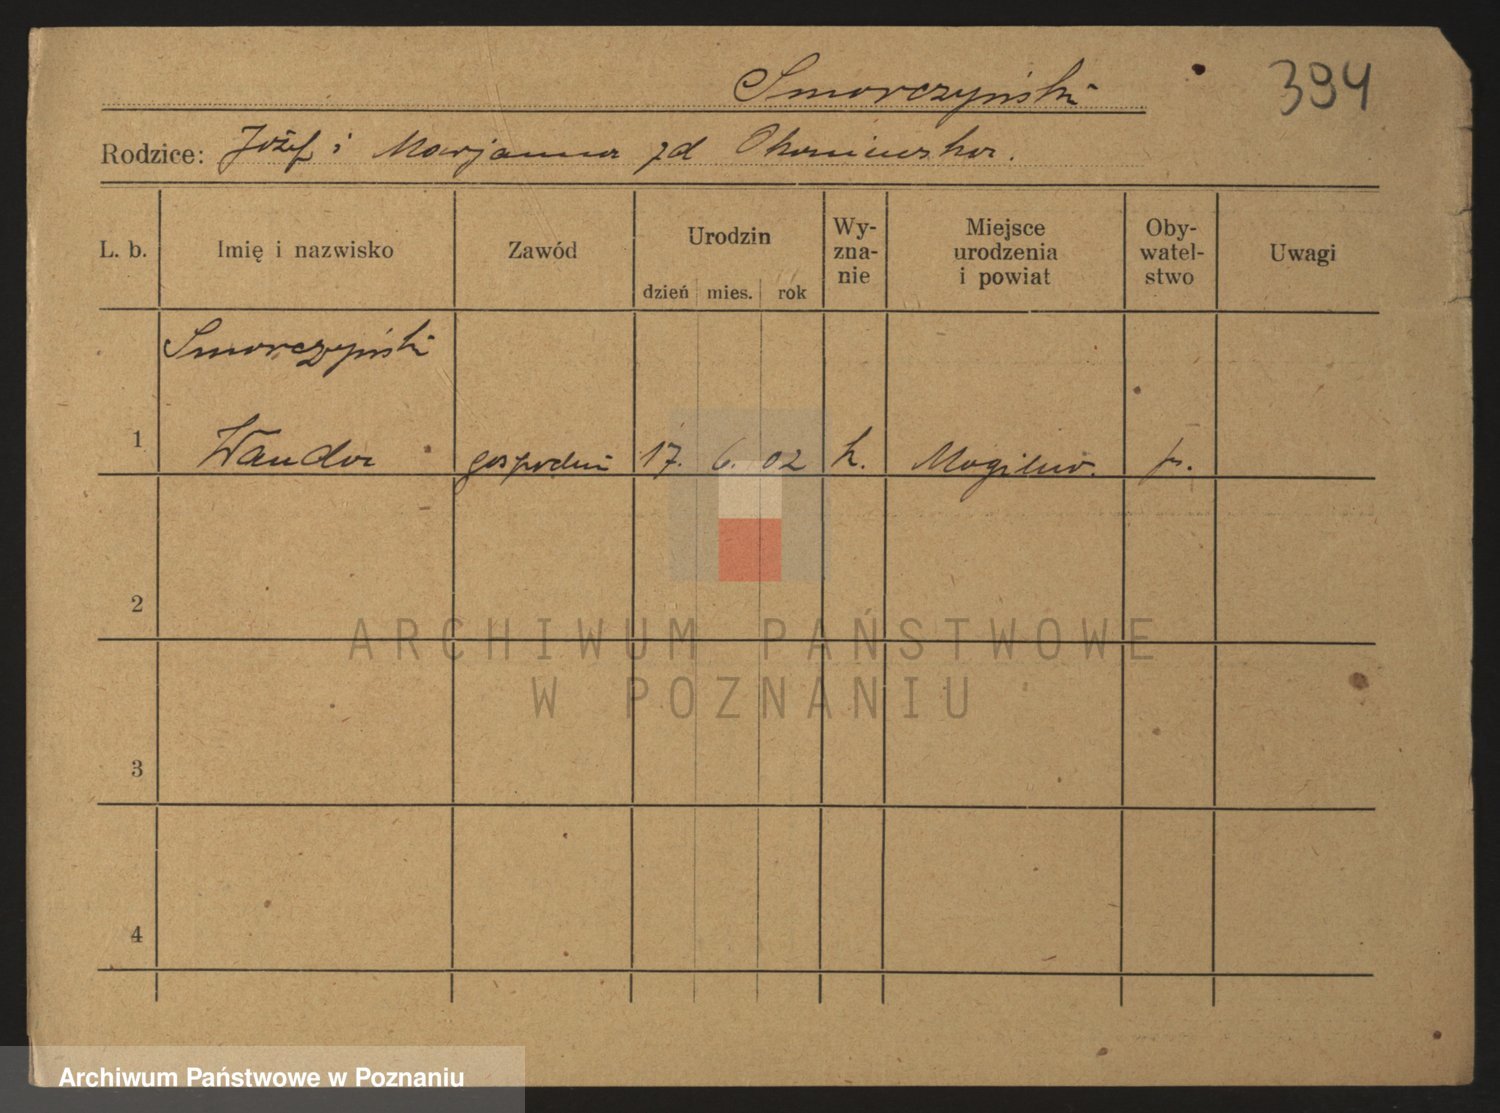 Smorczyński
394
Rodzice: Józef i Marjanna zd
L. b. Imię i nazwisko Zawód Urodzin dzień mies. rok Wy-zna-nie Miejsce urodzenia i powiat Oby-watel-stwo Uwagi
Smorczyński
1 Wanda 17. 6. 02 k. Mogilno. p.
2
3
4
ARCHIWUM PAŃSTWOWE
W POZNANIU
Archiwum Państwowe w Poznaniu